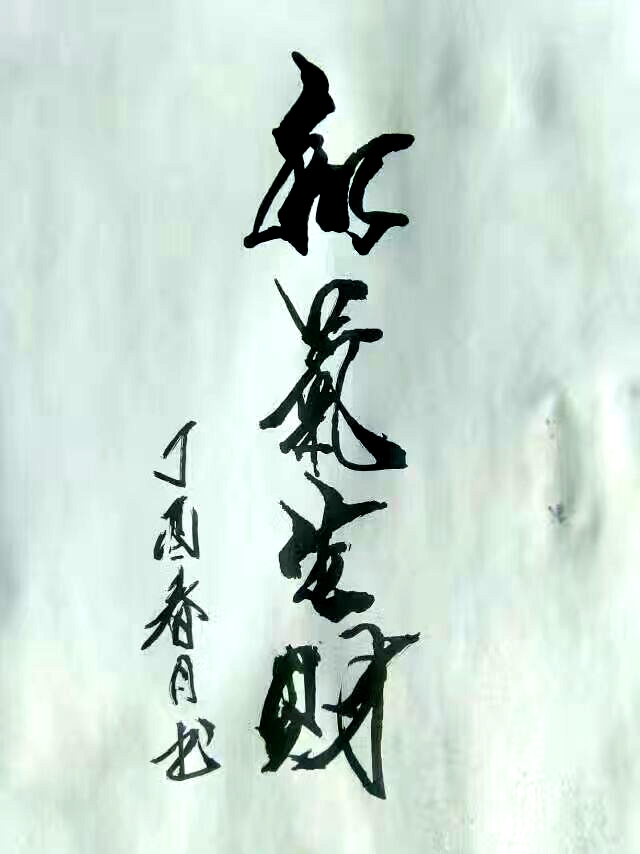 和氣生财
丁酉春月书